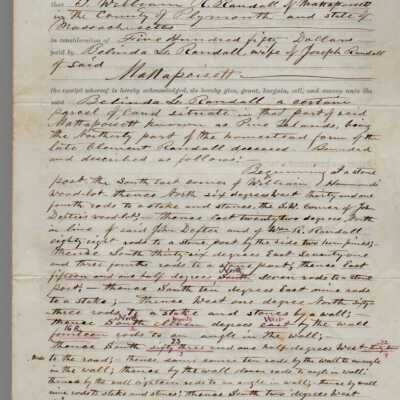 that I William R. Randall of Mattapoisett
in the County of Plymouth and state of
Massachusetts
in consideration of Five Hundred fifty Dollars
paid by Belinda L. Randall, wife of Joseph Randall
of said
Mattapoisett
the receipt whereof is hereby acknowledged, do hereby give, grant, bargain, sell, and convey unto the
said Belinda L. Randall a certain
parcel of land situate in that part of said
Mattapoisett known as Pine Islands, being
the Northerly part of the homestead farm of the
late Clement Randall deceased. Bounded
and described as follows:
Beginning at a stone
post the South East corner of William Hammond's
woodlot; thence North six degrees West thirty and one
fourth rods to a stake and stones the S.W. corner of John
Dexter's woodlot; - thence East twenty two degrees North
in line of said John Dexter and of Wm R. Randall
eighty eight rods to a stone post by the side two pines; -
thence South thirty six degrees East Seventy one
and three fourth rods to a stone post; thence East
fifteen and one half degrees North South Seven rods to a stone
post; - thence South ten degrees East nine rods
to a stake; - thence West one degree North fifty
three rods to a stake and stones by a wall; -
thence South eleven degrees East by the wall
rods to an angle in the wall;
thence South sixty three and one half degrees West
to the road; - thence same course ten rods by the wall to an angle
in the wall; thence by the wall eleven rods to angle in wall;
thence by the wall eighteen rods to an angle in wall; - thence by wall
nine rods to stake and stones; thence degrees West